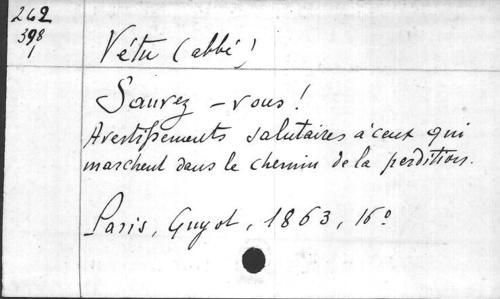 262
398
1
Vétu (abbé)
Sauvez-vous!
Avertissements salutaires à ceux qui
marchent dans le chemin de la perdition.
Paris, Guyot, 1863, 16º